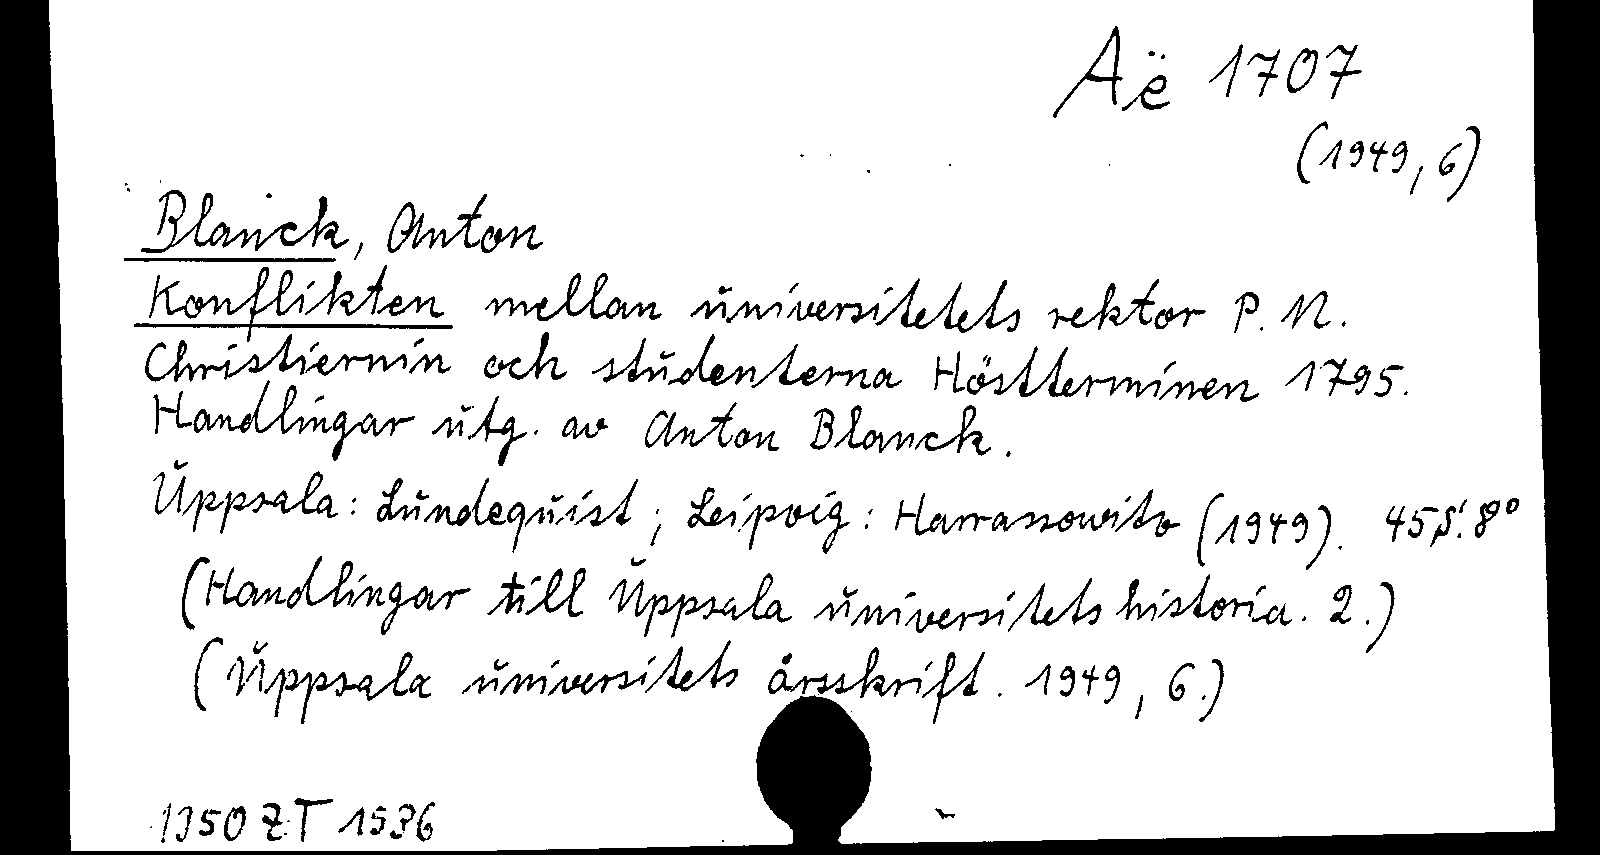 Aë 1707
(1949, 6)
Blanck, Anton
Konflikten mellan universitetets rektor P. N.
Christiernin och studenterna Höstterminen 1795.
Handlingar utg. av Anton Blanck.
Uppsala: Lundequist; Leipzig: Harrassowitz (1949). 45 S. 8°
(Handlingar till Uppsala universitets historia. 2.)
(Uppsala universitets årsskrift. 1949, 6.)
1950 ZT 1536